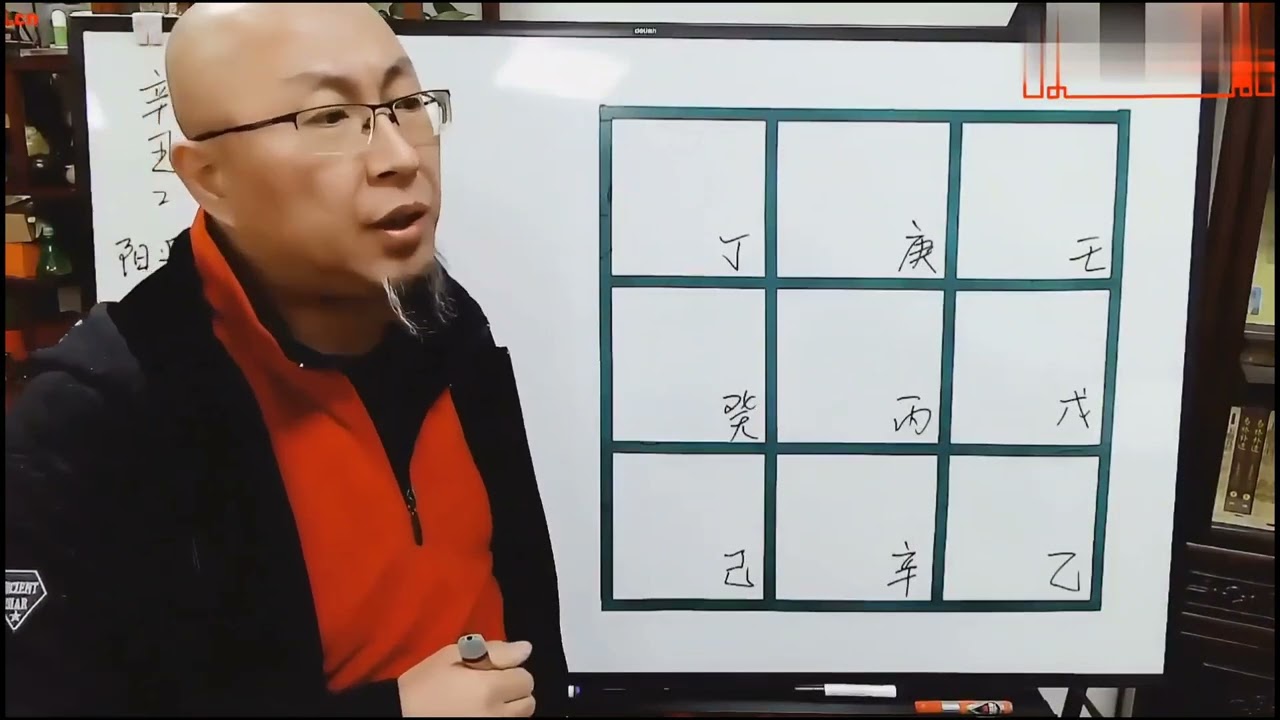 .cn
deli
辛
丑
阳
丁 庚 壬
癸 丙 戊
己 辛 乙